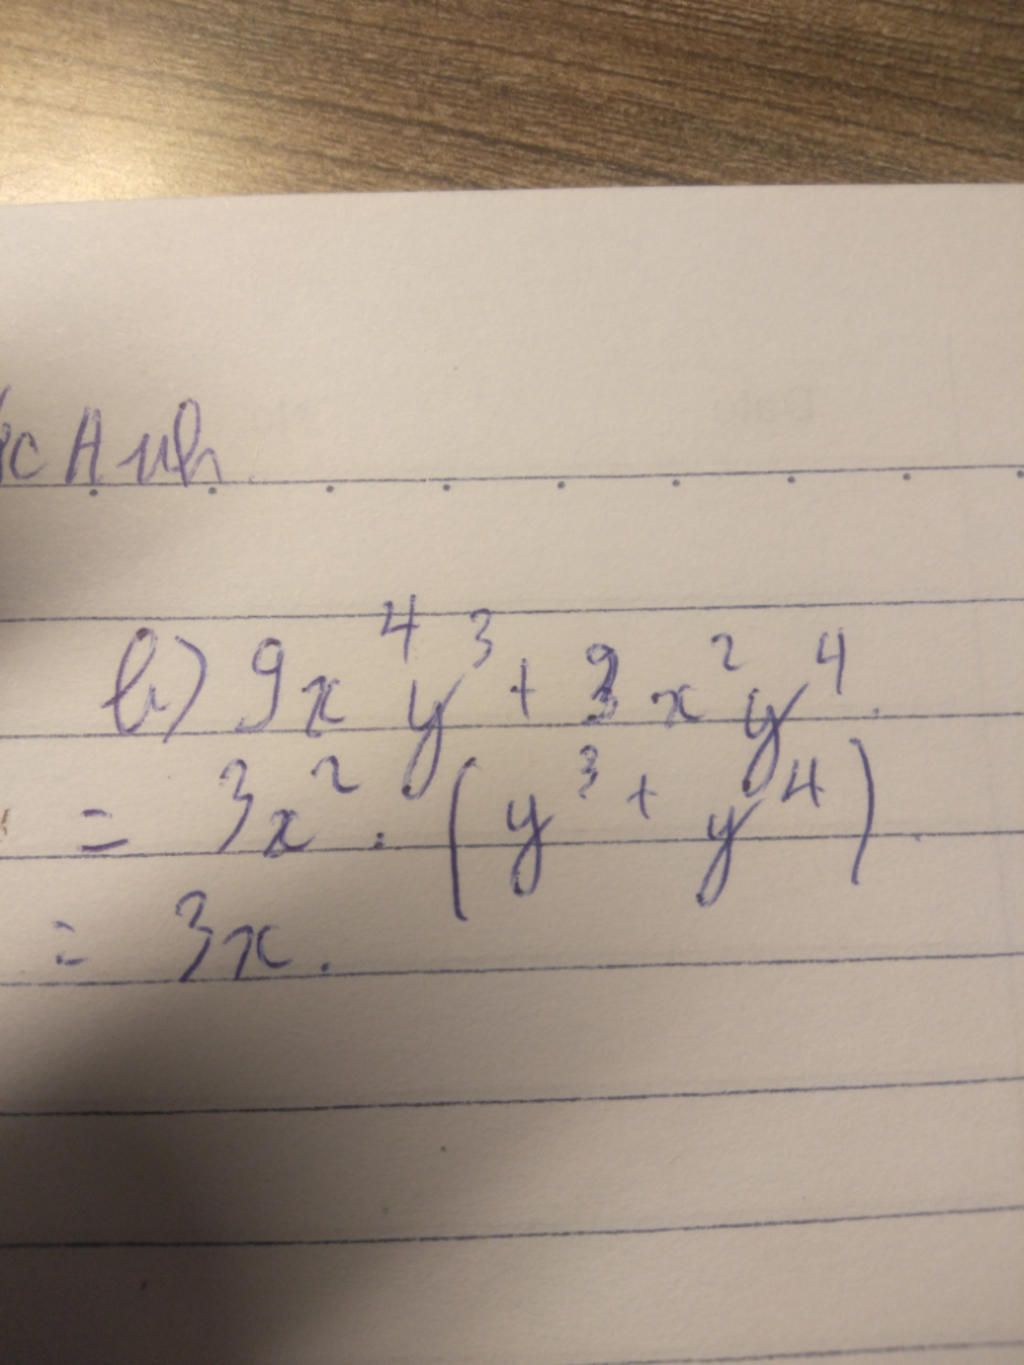 Anh
b) 9x⁴y³ + 3x²y⁴.
= 3x² . (y³ + y⁴).
= 3x.